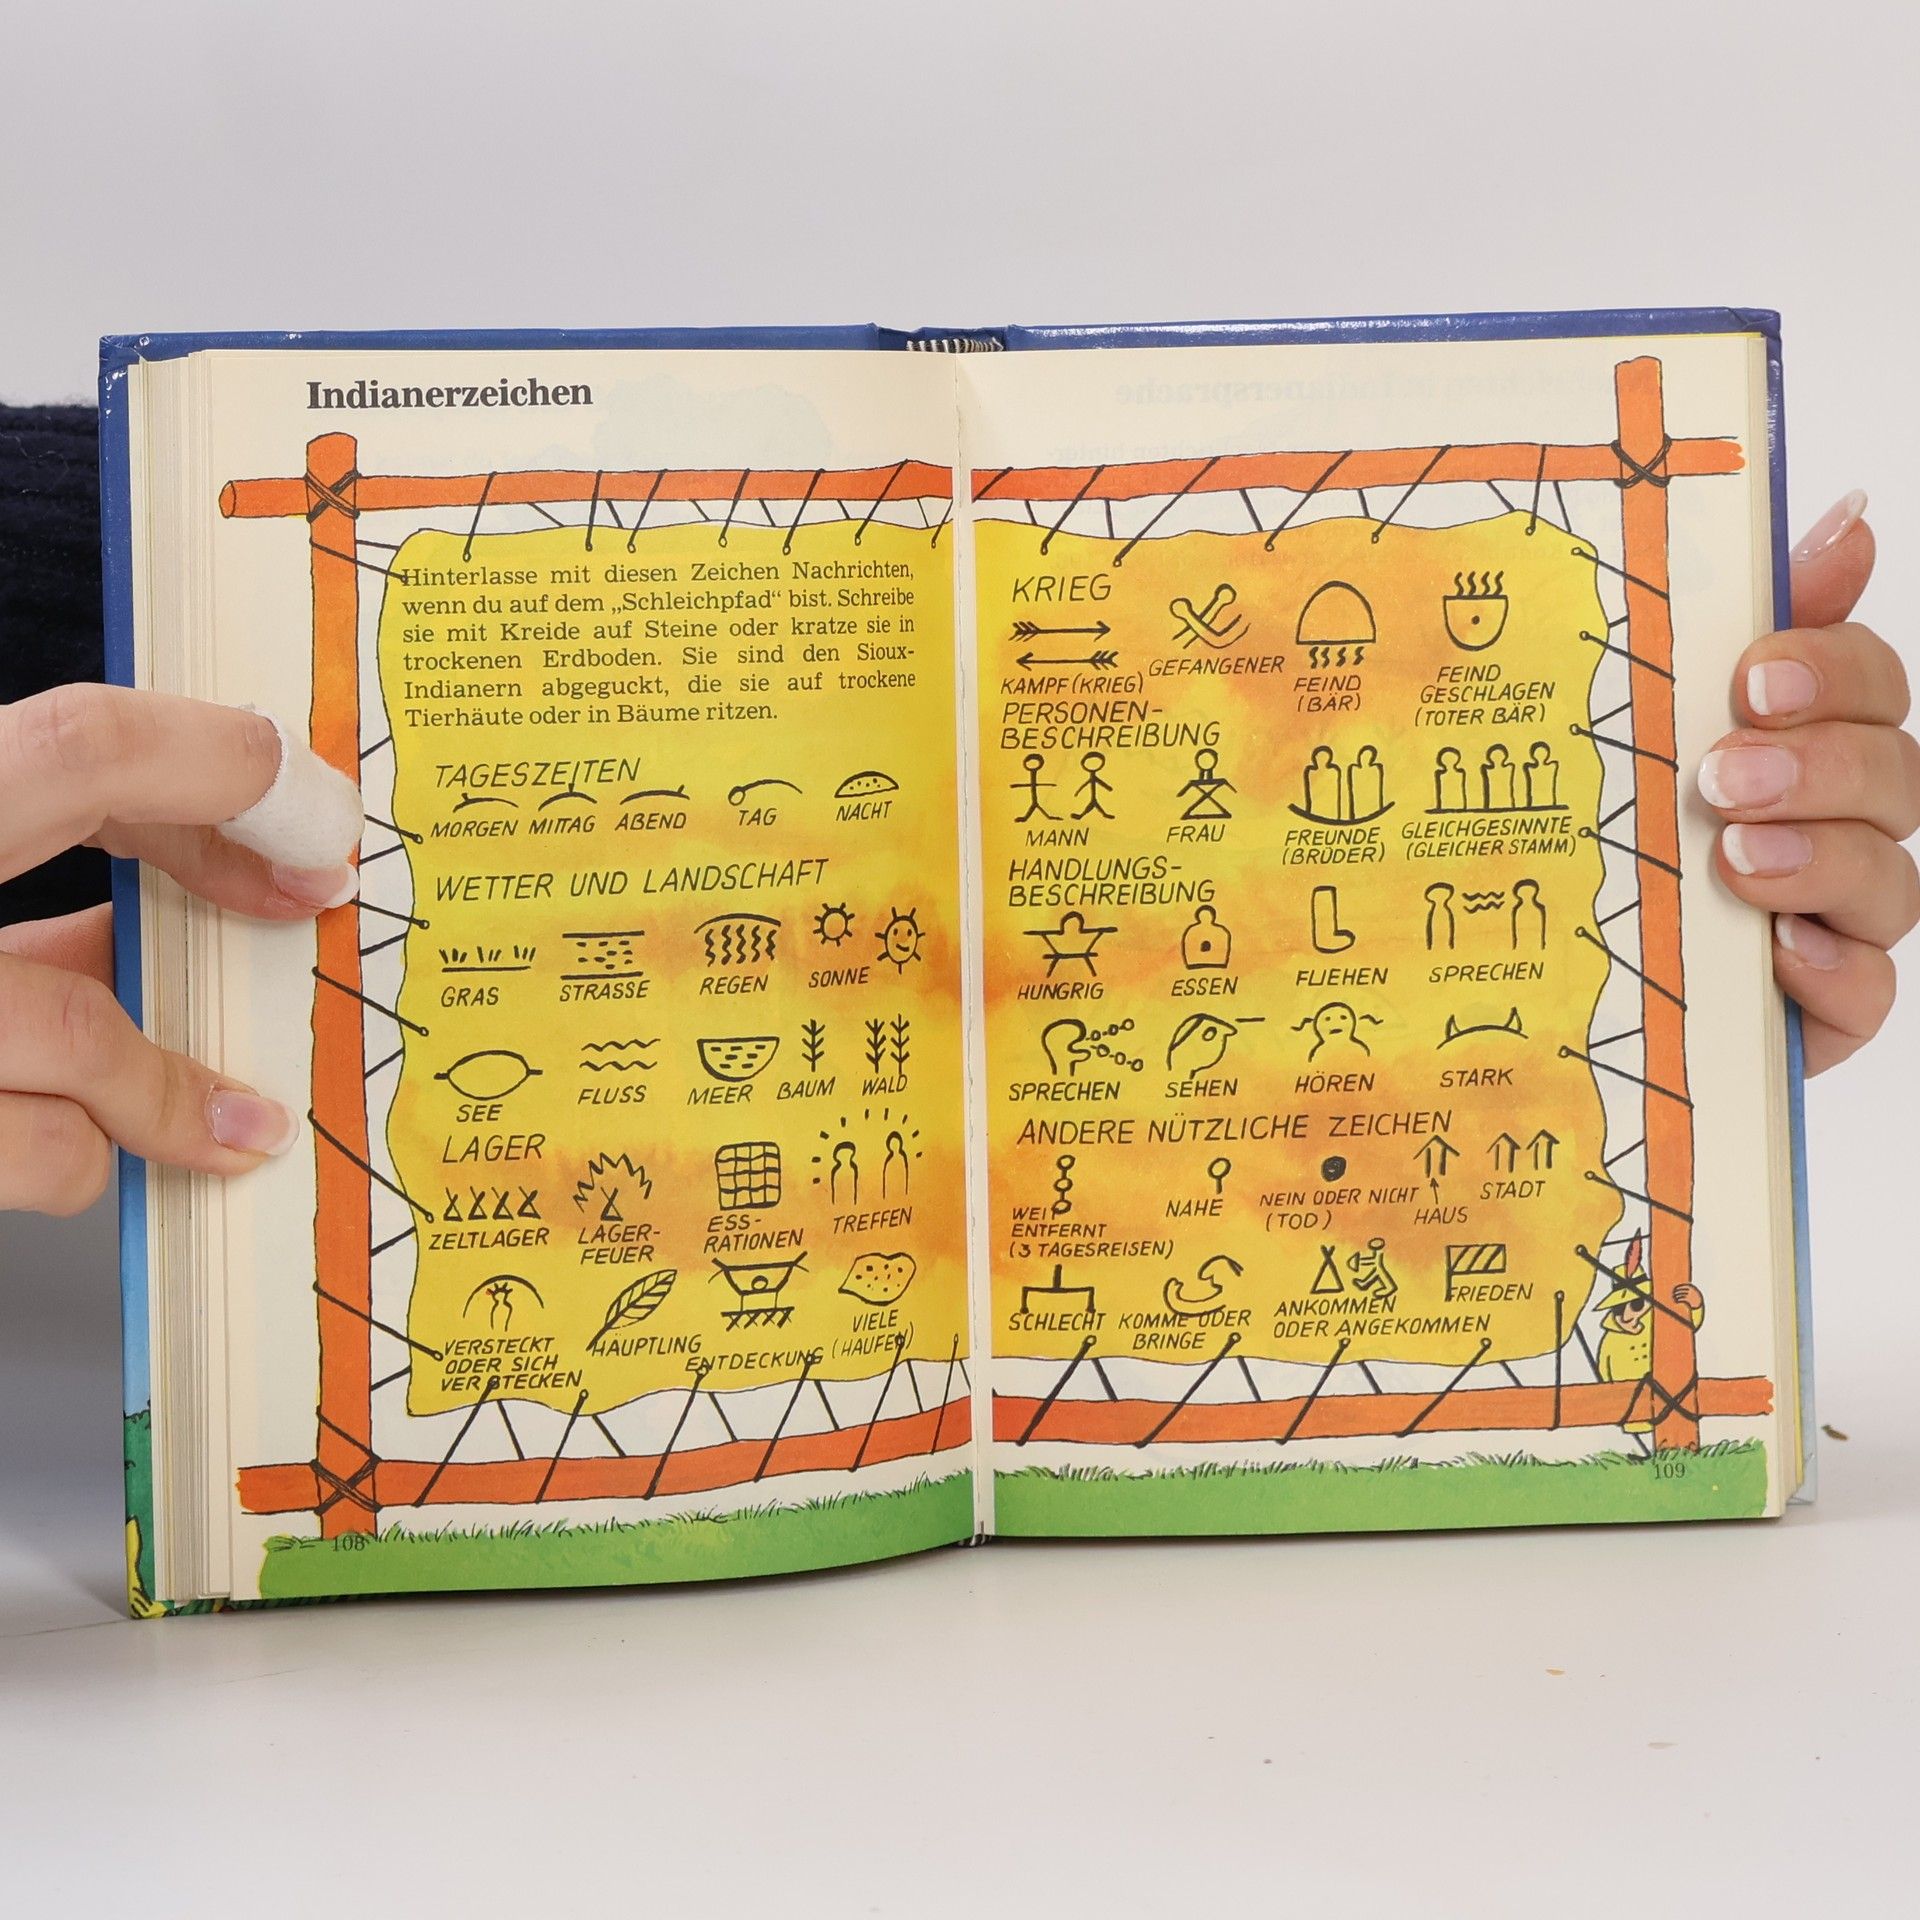 Indianerzeichen
Hinterlasse mit diesen Zeichen Nachrichten,
wenn du auf dem „Schleichpfad“ bist. Schreibe
sie mit Kreide auf Steine oder kratze sie in
trockenen Erdboden. Sie sind den Sioux-
Indianern abgeguckt, die sie auf trockene
Tierhäute oder in Bäume ritzen.
TAGESZEITEN
MORGEN MITTAG ABEND TAG NACHT
WETTER UND LANDSCHAFT
GRAS STRASSE REGEN SONNE
SEE FLUSS MEER BAUM WALD
LAGER
ZELTLAGER LAGER-
FEUER
ESS-
RATIONEN
TREFFEN
VERSTECKT
ODER SICH
VERSTECKEN
HÄUPTLING
ENTDECKUNG
VIELE
(HAUFEN)
108
KRIEG
KAMPF (KRIEG)
GEFANGENER
FEIND
(BÄR)
FEIND
GESCHLAGEN
(TOTER BÄR)
PERSONEN-
BESCHREIBUNG
MANN FRAU
FREUNDE
(BRÜDER)
GLEICHGESINNTE
(GLEICHER STAMM)
HANDLUNGS-
BESCHREIBUNG
HUNGRIG ESSEN FLIEHEN SPRECHEN
SPRECHEN SEHEN HÖREN STARK
ANDERE NÜTZLICHE ZEICHEN
WEIT
ENTFERNT
(3 TAGESREISEN)
NAHE
NEIN ODER NICHT
(TOD)
HAUS
STADT
SCHLECHT
KOMME ODER
BRINGE
ANKOMMEN
ODER ANGEKOMMEN
FRIEDEN
109